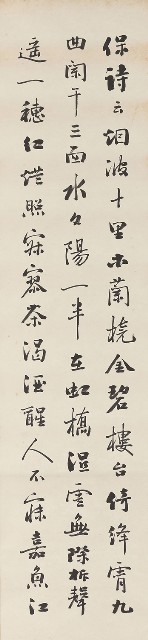 保詩云烟波十里木蘭橈金碧樓台倚絳霄九
曲闌干三面水夕陽一半在虹橋雲無際柝聲
遥一穗红燈照寂寥茶渴酒醒人不寐嘉魚江